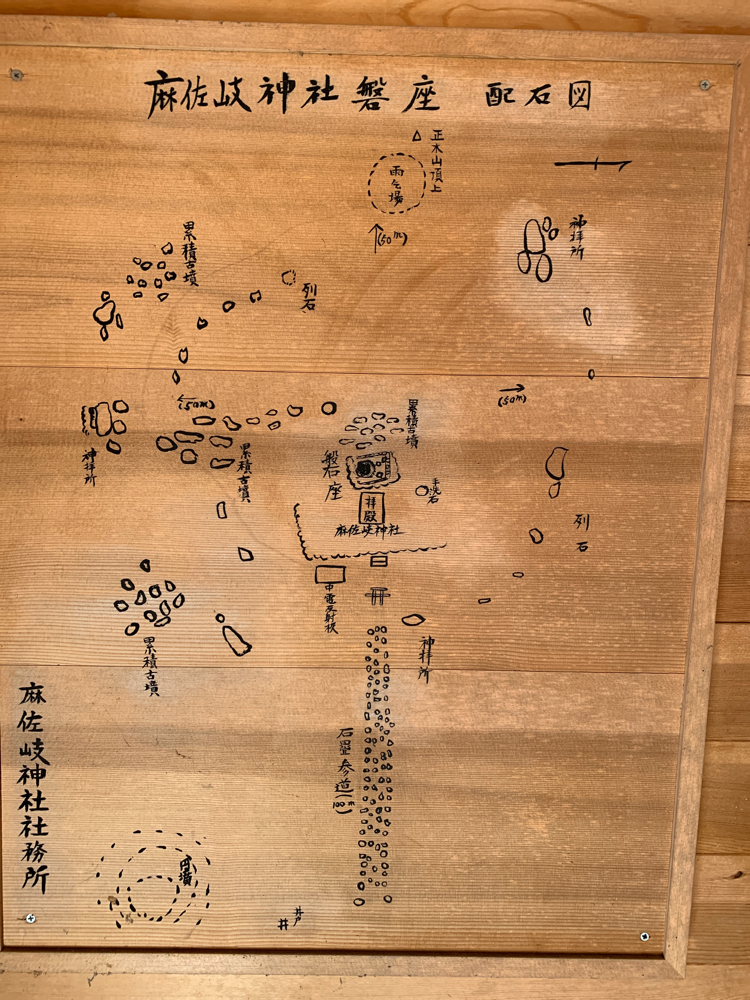 麻佐岐神社磐座 配石図
正木山頂上
雨乞場
(50m)
神拝所
累積古墳
列石
(50m)
(50m)
累積古墳
神拝所
累積古墳
磐座
手洗石
拝殿
麻佐岐神社
列石
中電反射板
累積古墳
神拝所
石畳参道(100m)
麻佐岐神社社務所
円墳
井戸
井